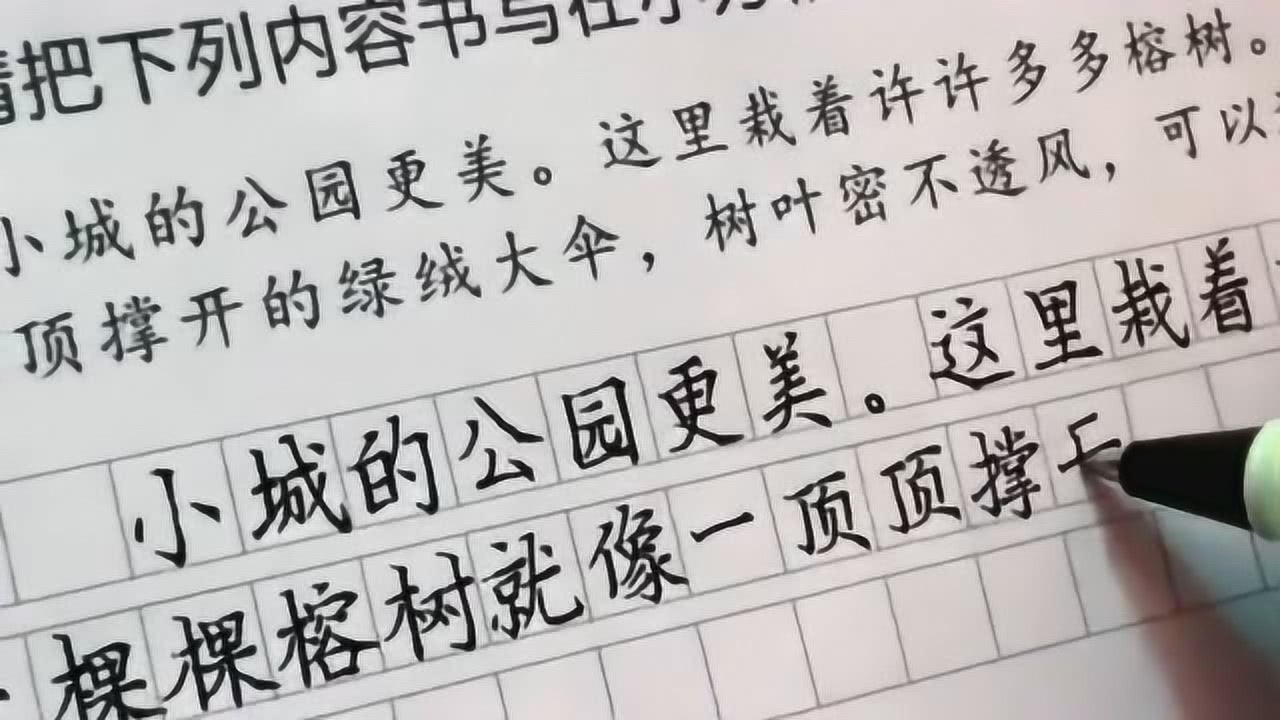 请把下列内容书写在小方
小城的公园更美。这里栽着许许多多榕树。
顶撑开的绿绒大伞，树叶密不透风，可以
小城的公园更美。这里栽着
棵棵榕树就像一顶顶撑